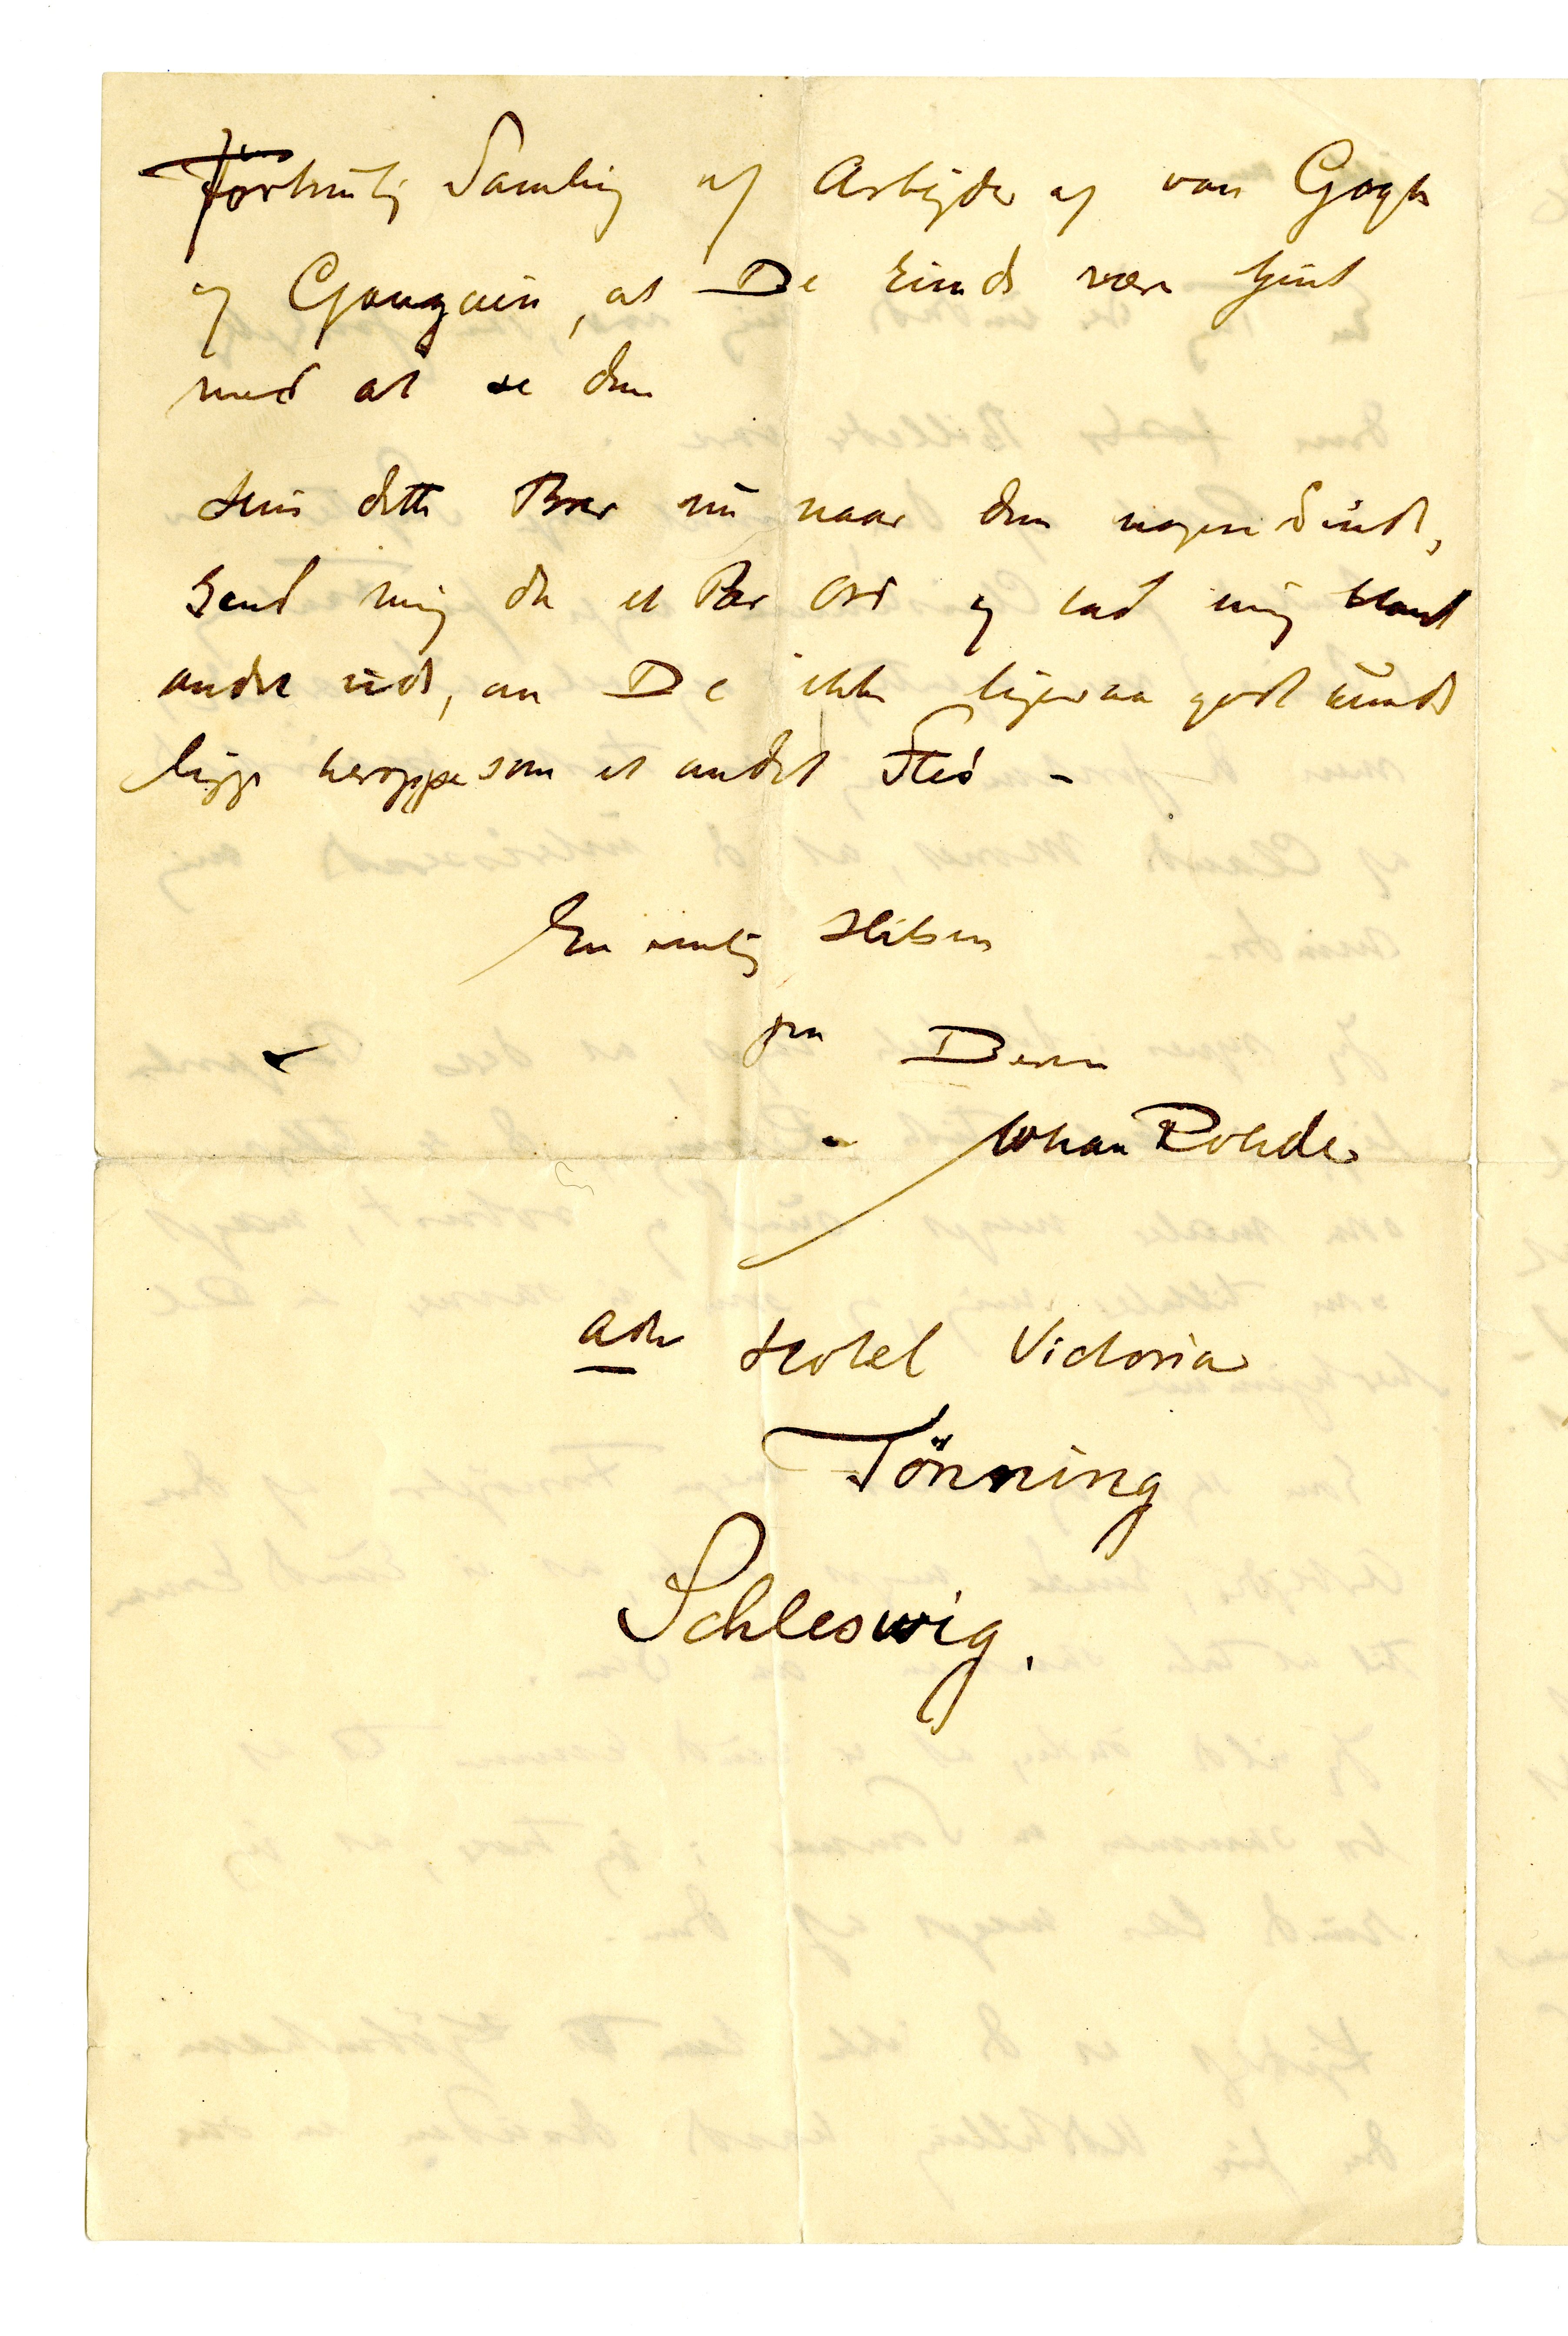 fortrinlig Samling af Arbejder af van Gogh
og Gauguin, at De kunde være tjent
med at se den
Hvis dette Brev nu naar Dem nogenlunde,
Send mig da et Par Ord og lad mig blandt
andet vide, om De ikke ligesaa godt kunde
ligge heroppe som et andet Sted –
En venlig Hilsen
fra Deres
Johan Rohde
adr Hotel Victoria
Tönning
Schleswig.